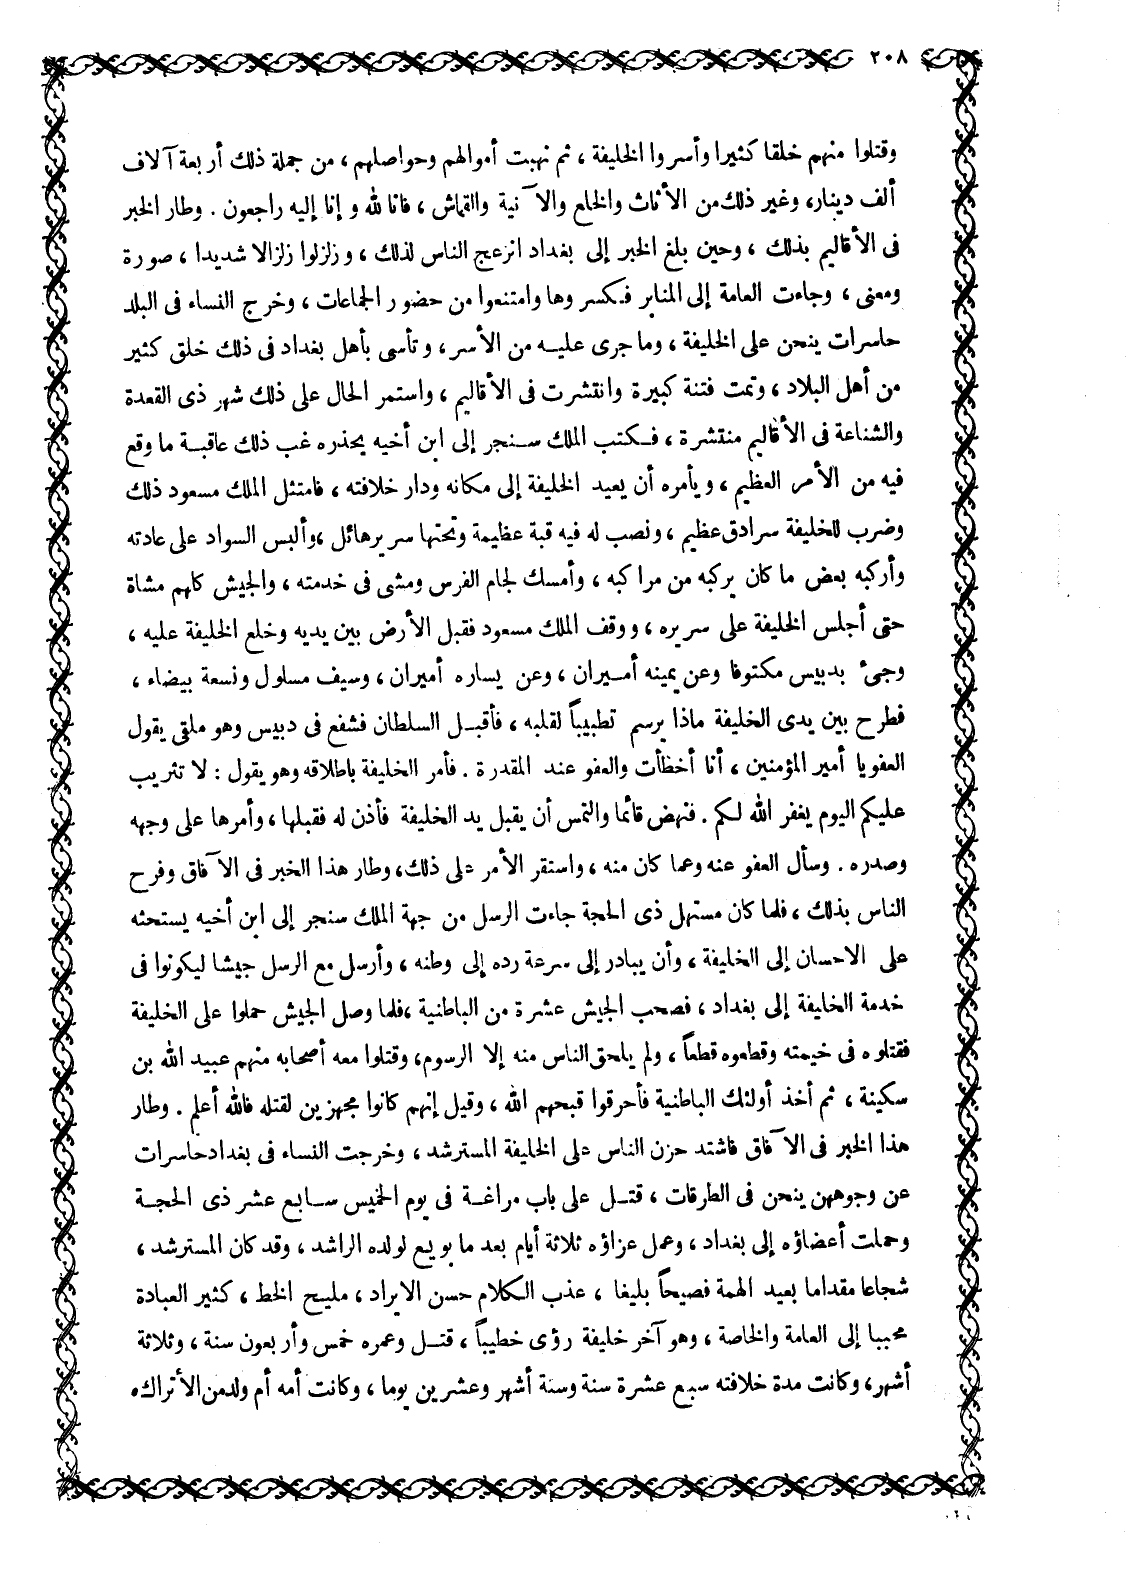 ٢٠٨
وقتلوا منهم خلقا كثيرا وأسروا الخليفة ، ثم نهبت أموالهم وحواصلهم ، من جملة ذلك أربعة آلاف
ألف دينار، وغير ذلك من الأثاث والخلع والآنية والقماش ، فانا لله و إنا إليه راجعون . وطار الخبر
فى الأقاليم بذلك ، وحين بلغ الخبر إلى بغداد انزعج الناس لذلك ، وزلزلوا زلزالا شديدا ، صورة
ومعنى ، وجاءت العامة إلى المنابر فكسروها وامتنعوا من حضور الجماعات ، وخرج النساء فى البلد
حاسرات ينحن على الخليفة ، وما جرى عليه من الأسر ، وتأسى بأهل بغداد فى ذلك خلق كثير
من أهل البلاد ، وتمت فتنة كبيرة وانتشرت فى الأقاليم ، واستمر الحال على ذلك شهر ذى القعدة
والشناعة فى الأقاليم منتشرة ، فكتب الملك سنجر إلى ابن أخيه يحذره غب ذلك عاقبة ما وقع
فيه من الأمر العظيم ، ويأمره أن يعيد الخليفة إلى مكانه ودار خلافته ، فامتثل الملك مسعود ذلك
وضرب للخليفة سرادق عظيم ، ونصب له فيه قبة عظيمة وتحتها سرير هائل ،وألبس السواد على عادته
وأركبه بعض ما كان يركبه من مراكبه ، وأمسك لجام الفرس ومشى فى خدمته ، والجيش كلهم مشاة
حتى أجلس الخليفة على سريره ، ووقف الملك مسعود فقبل الأرض بين يديه وخلع الخليفة عليه ،
وجئ بدبيس مكتوفا وعن يمينه أميران ، وعن يساره أميران ، وسيف مسلول ونسعة بيضاء ،
فطرح بين يدى الخليفة ماذا يرسم تطبيباً لقلبه ، فأقبل السلطان فشفع فى دبيس وهو ملقى يقول
العفو يا أمير المؤمنين ، أنا أخطأت والعفو عند المقدرة . فأمر الخليفة باطلاقه وهو يقول : لا تثريب
عليكم اليوم يغفر الله لكم . فنهض قائما والتمس أن يقبل يد الخليفة فأذن له فقبلها ، وأمرها على وجهه
وصدره . وسأل العفو عنه وعما كان منه ، واستقر الأمر على ذلك، وطار هذا الخبر فى الآفاق وفرح
الناس بذلك ، فلما كان مستهل ذى الحجة جاءت الرسل من جهة الملك سنجر إلى ابن أخيه يستحثه
على الاحسان إلى الخليفة ، وأن يبادر إلى سرعة رده إلى وطنه ، وأرسل مع الرسل جيشا ليكونوا فى
خدمة الخليفة إلى بغداد ، فصحب الجيش عشرة من الباطنية ،فلما وصل الجيش حملوا على الخليفة
فقتلوه فى خيمته وقطعوه قطعاً ، ولم يلحق الناس منه إلا الرسوم، وقتلوا معه أصحابه منهم عبيد الله بن
سكينة ، ثم أخذ أولئك الباطنية فأحرقوا قبحهم الله ، وقيل إنهم كانوا مجهزين لقتله فالله أعلم . وطار
هذا الخبر فى الآفاق فاشتد حزن الناس على الخليفة المسترشد ، وخرجت النساء فى بغداد حاسرات
عن وجوههن ينحن فى الطرقات ، قتل على باب مراغة فى يوم الخميس سابع عشر ذى الحجة
وحملت أعضاؤه إلى بغداد ، وعمل عزاؤه ثلاثة أيام بعد ما بويع لولده الراشد ، وقد كان المسترشد ،
شجاعا مقداما بعيد الهمة فصيحاً بليغا ، عذب الكلام حسن الايراد ، مليح الخط ، كثير العبادة
محببا إلى العامة والخاصة ، وهو آخر خليفة رؤى خطيباً ، قتل وعمره خمس وأربعون سنة ، وثلاثة
أشهر ، وكانت مدة خلافته سبع عشرة سنة وستة أشهر وعشرين يوما ، وكانت أمه أم ولد من الأتراك،